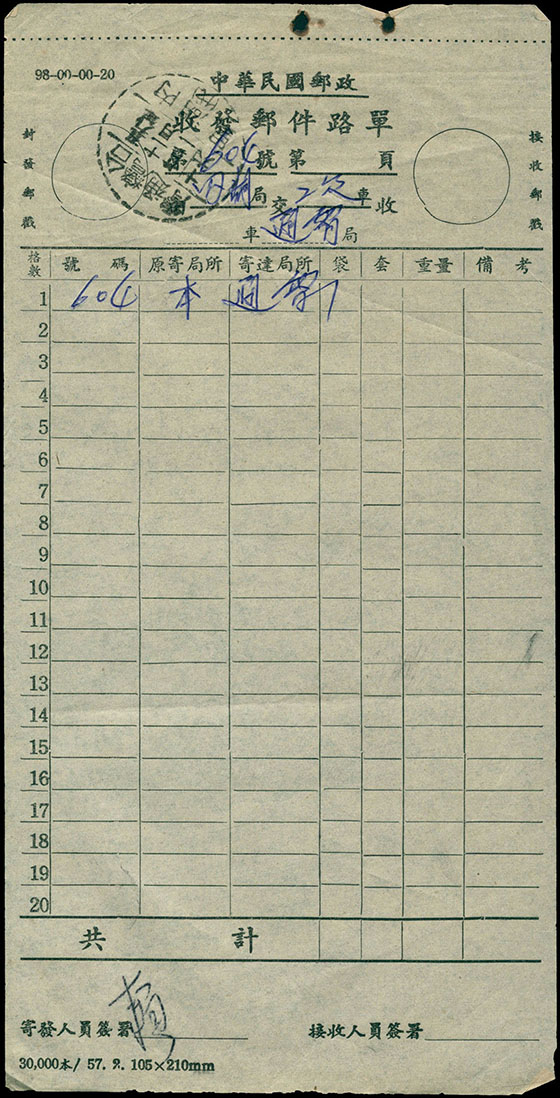 98-00-00-20
中華民國郵政
收發郵件路單
604號第 頁
局交二次車收
車通霄局
封發郵戳
接收郵戳
格數 號碼 原寄局所 寄達局所 袋 套 重量 備考
1 604 本 通霄
2
3
4
5
6
7
8
9
10
11
12
13
14
15
16
17
18
19
20
共計
寄發人員簽署
接收人員簽署
30,000本/ 57. 2. 105×210mm